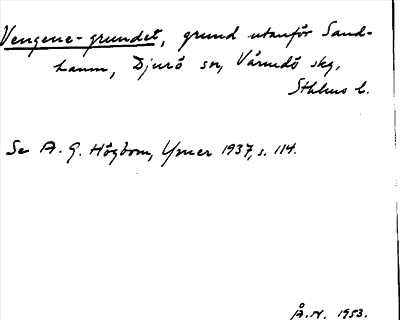 Vengene-grundet, grund utanför Sand-
hamn, Djurö sn, Värmdö skg,
Sthlms l.
Se A. G. Högbom, Ymer 1937, s. 114.
Å. N. 1953.